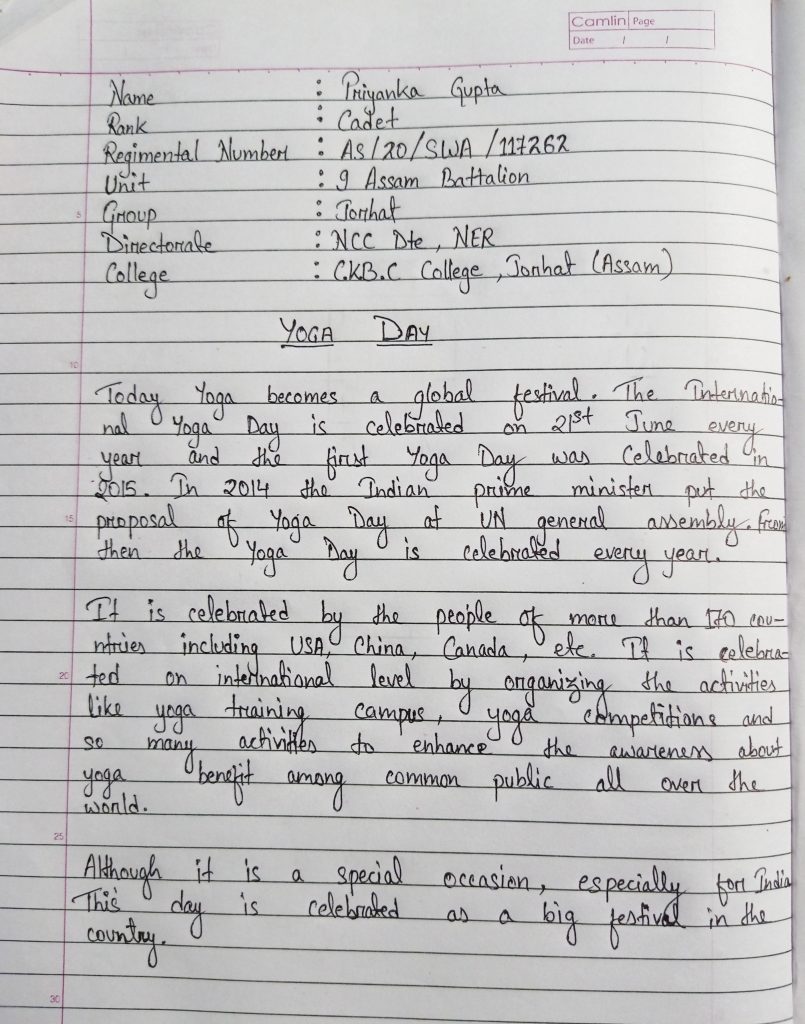 Camlin Page
Date / /
Name : Priyanka Gupta
Rank : Cadet
Regimental Number : AS/20/SWA/117262
Unit : 9 Assam Battalion
5 Group : Jorhat
Directorate : NCC Dte, NER
College : C.K.B.C College, Jorhat (Assam)
YOGA DAY
10
Today Yoga becomes a global festival. The Internatio-
nal Yoga Day is celebrated on 21st June every
year and the first Yoga Day was Celebrated in
2015. In 2014 the Indian prime minister put the
15 proposal of Yoga Day at UN general assembly. From
then the Yoga Day is celebrated every year.
It is celebrated by the people of more than 170 cou-
ntries including USA, China, Canada, etc. It is celebra-
20 ted on international level by organizing the activities
like yoga training campus, yoga competitions and
so many activities to enhance the awareness about
yoga benefit among common public all over the
world.
25
Although it is a special occasion, especially for India
This day is celebrated as a big festival in the
country.
30